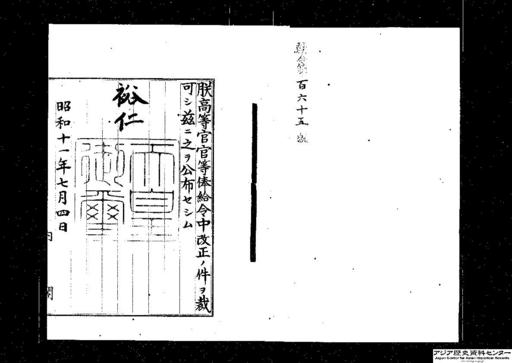 勅令第百六十五号
朕高等官官等俸給令中改正ノ件ヲ裁
可シ茲ニ之ヲ公布セシム
裕仁
天皇御璽
昭和十一年七月四日
内閣
アジア歴史資料センター
Japan Center for Asian Historical Records